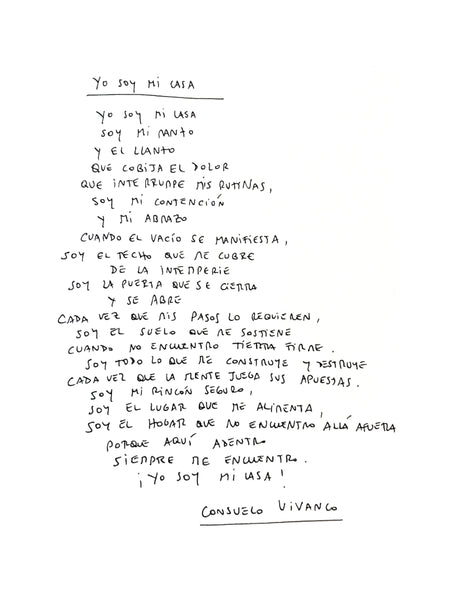 YO SOY MI CASA
YO SOY MI CASA
SOY MI MANTO
Y EL LLANTO
QUE COBIJA EL DOLOR
QUE INTERRUMPE MIS RUTINAS,
SOY MI CONTENCIÓN
Y MI ABRAZO
CUANDO EL VACÍO SE MANIFIESTA,
SOY EL TECHO QUE ME CUBRE
DE LA INTEMPERIE
SOY LA PUERTA QUE SE CIERRA
Y SE ABRE
CADA VEZ QUE MIS PASOS LO REQUIEREN,
SOY EL SUELO QUE ME SOSTIENE
CUANDO NO ENCUENTRO TIERRA FIRME.
SOY TODO LO QUE ME CONSTRUYE Y DESTRUYE
CADA VEZ QUE LA MENTE JUEGA SUS APUESTAS.
SOY MI RINCÓN SEGURO,
SOY EL LUGAR QUE ME ALIMENTA,
SOY EL HOGAR QUE NO ENCUENTRO ALLÁ AFUERA
PORQUE AQUÍ ADENTRO
SIEMPRE ME ENCUENTRO.
¡YO SOY MI CASA!
CONSUELO VIVANCO